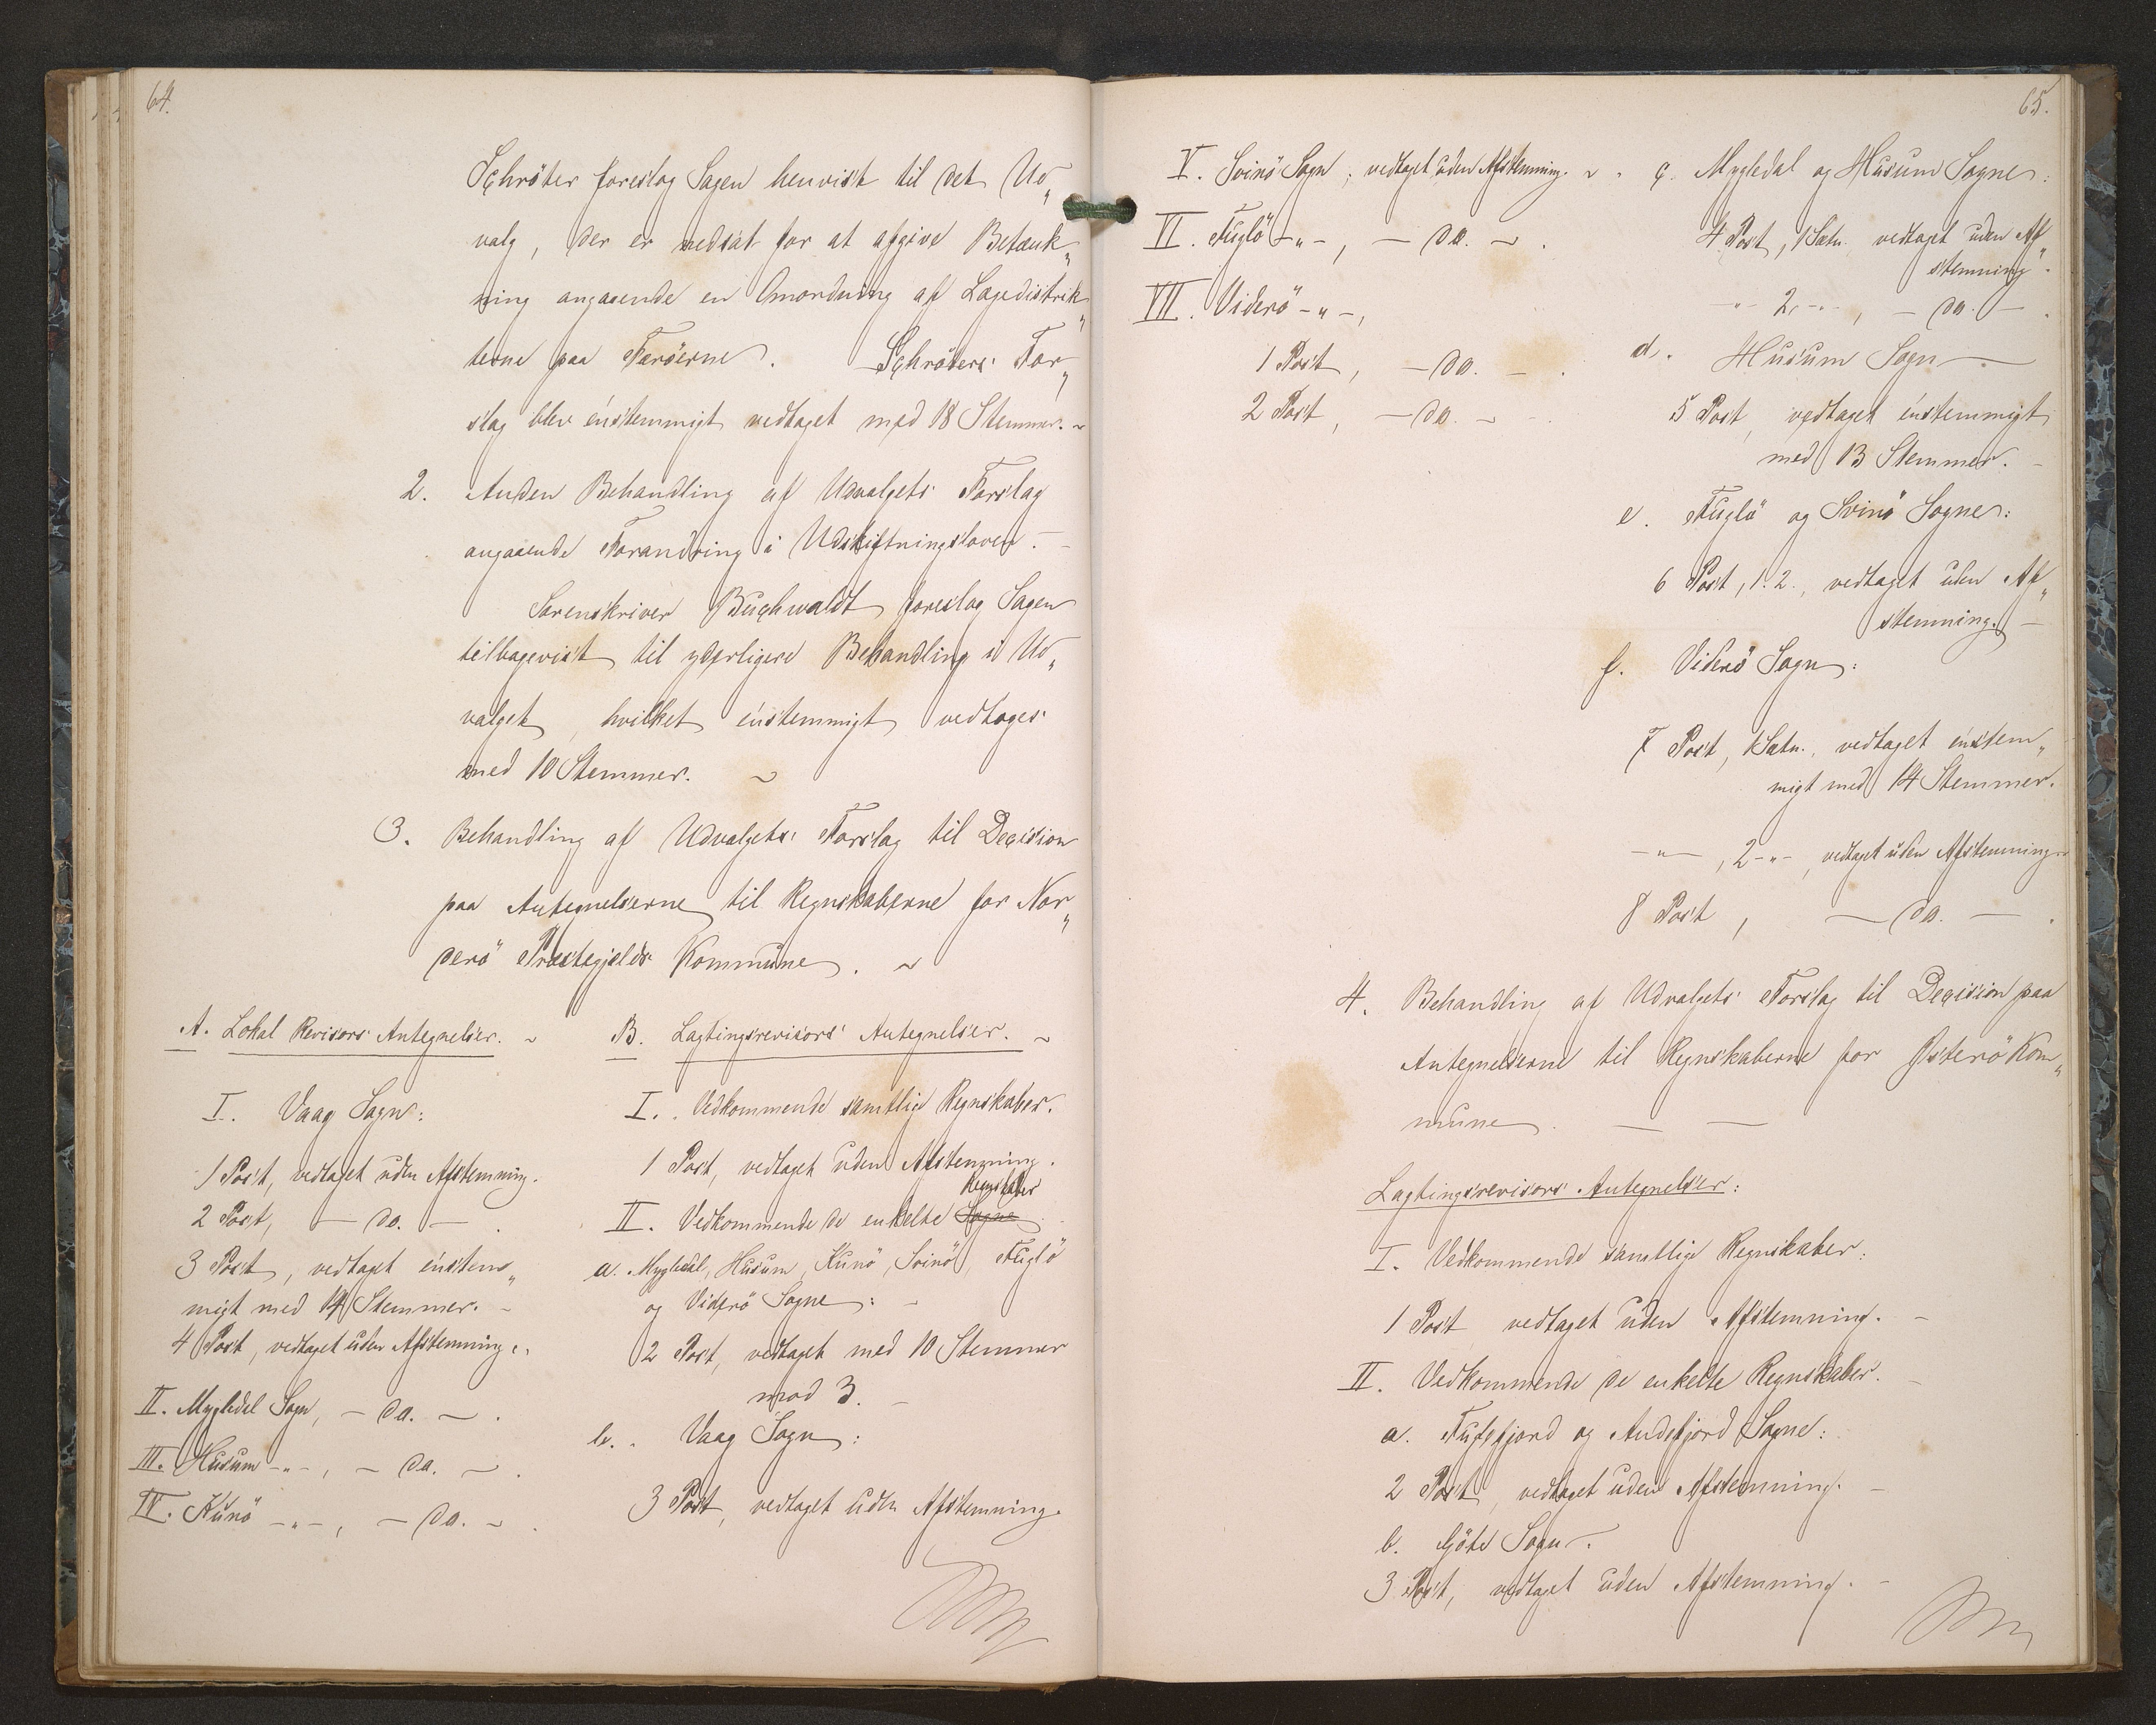 64.
Schröter foreslog Sagen henvist til det Ud„
valg, der er nedsat for at afgive Betænk„
ning angaaende en Omordning af Lægedistrik„
terne paa Færöerne. Schröters For„
slag blev énstemmigt vedtaget med 18 Stemmer. ~
2. Anden Behandling af Udvalgets Forslag
angaaende Forandring i Udskiftningsloven. –
Sorenskriver Buchwaldt foreslog Sagen
tilbagevist til yderligere Behandling i Ud„
valget, hvilket énstemmigt vedtoges
med 10 Stemmer. ~
3. Behandling af Udvalgets Forslag til Decision
paa Antegnelserne til Regnskaberne for Nor„
derö Præstegjelds Kommune. ~
A. Lokal Revisors Antegnelser. ~
I. Vaag Sogn:
1 Post, vedtaget uden Afstemning.
2 Post, – do. – .
3 Post, vedtaget énstem„
migt med 14 Stemmer. –
4 Post, vedtaget uden Afstemning.
II. Mygledal Sogn, – do. – .
III. Husum –„–, – do. – .
IV. Kunö –„–, – do. – .
B. Lagtingsrevisors Antegnelser. ~
I. Vedkommende samtlige Regnskaber.
1 Post, vedtaget uden Afstemning.
Regnskaber
II. Vedkommende de enkelte Sogne
a. Mygledal, Husum, Kunö, Svinö, Fuglö
og Viderö Sogne: –
2 Post, vedtaget med 10 Stemmer
mod 3. –
b. Vaag Sogn:
3 Post, vedtaget uden Afstemning.
65.
V. Svinö Sogn, vedtaget uden Afstemning. ~
VI. Fuglö –„–, – do. – .
VII. Viderö –„–,
1 Post, – do. – .
2 Post, – do. –
c. Mygledal og Husum Sogne:
4 Post, 1 Sætn. vedtaget uden Af„
stemning.
–„– 2 –„–, – do. – .
d. Husum Sogn –
5 Post, vedtaget énstemmigt
med 13 Stemmer. –
e. Fuglö og Svinö Sogne:
6 Post, 1. 2., vedtaget uden Af„
stemning. –
f. Viderö Sogn:
7 Post, 1 Sætn., vedtaget énstem„
migt med 14 Stemmer.
–„–, 2 –„–, vedtaget uden Afstemning.
8 Post, – do. – .
4. Behandling af Udvalgets Forslag til Decision paa
Antegnelserne til Regnskaberne for Østerö Kom„
mune. – –
Lagtingsrevisors Antegnelser:
I. Vedkommende samtlige Regnskaber:
1 Post vedtaget uden Afstemning. –
II. Vedkommende de enkelte Regnskaber. –
a. Fuglefjord og Andefjord Sogne:
2 Post, vedtaget uden Afstemning. –
b. Göte Sogn.
3 Post, vedtaget uden Afstemning. –